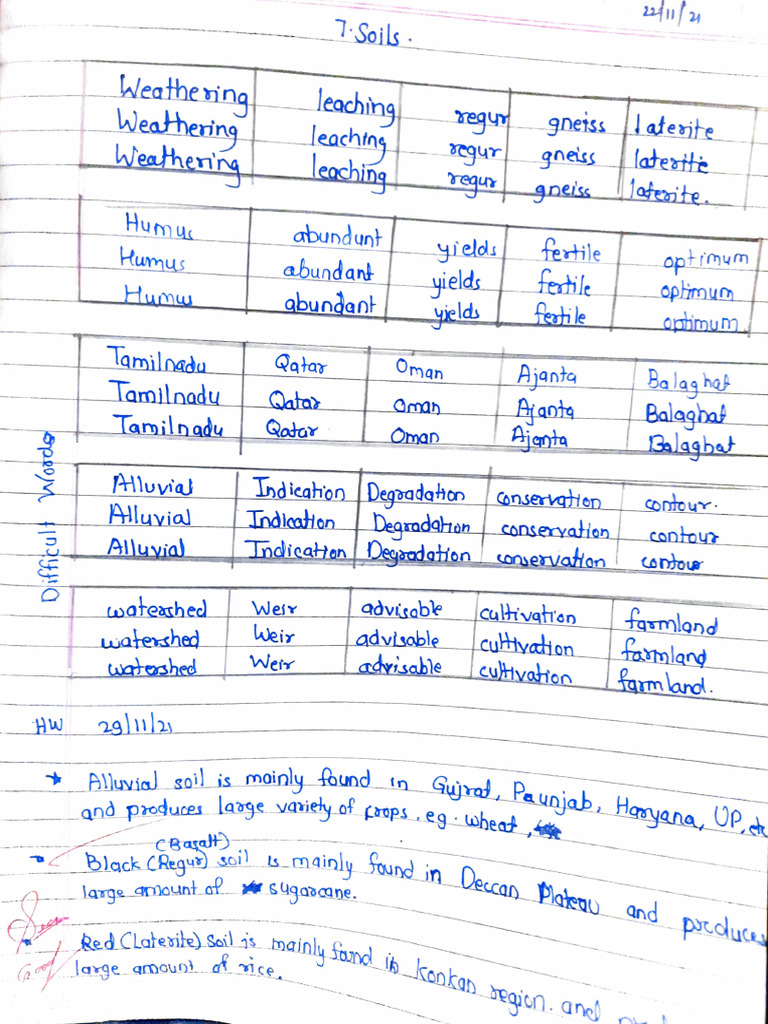 22/11/21
7. Soils.
Weathering leaching regur gneiss laterite
Weathering leaching regur gneiss laterite
Weathering leaching regur gneiss laterite.
Humus abundunt yields fertile optimum
Humus abundant yields fertile optimum
Humus abundant yields fertile optimum.
Tamilnadu Qatar Oman Ajanta Balaghat
Tamilnadu Qatar Oman Ajanta Balaghat
Tamilnadu Qatar Oman Ajanta Balaghat
Difficult Words
Alluvial Indication Degradation conservation contour.
Alluvial Indication Degradation conservation contour
Alluvial Indication Degradation conservation contour
watershed Weir advisable cultivation farmland
watershed Weir advisable cultivation farmland
watershed Weir advisable cultivation farmland.
HW 29/11/21
Alluvial soil is mainly found in Gujrat, Paunjab, Haryana, UP, etc
and produces large variety of crops. eg. wheat,
(Basalt)
Black (Regur) soil is mainly found in Deccan Plateau and produces
large amount of sugarcane.
Seen
Red (Laterite) soil is mainly found in Konkan region. and
Good
large amount of rice.